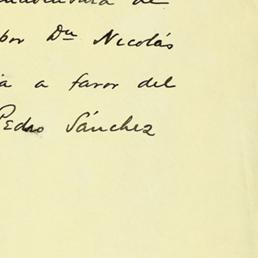 de
por Dn Nicolás
a a favor del
Pedro Sánchez